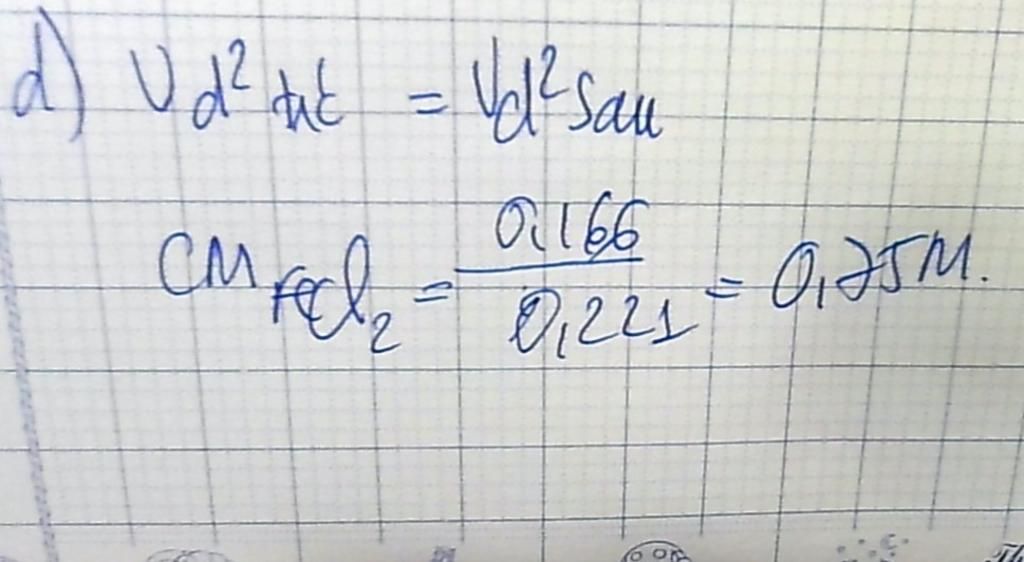 d) Vd² trc = Vd² sau
CM FeCl₂ = 0,166 / 0,221 = 0,75M.